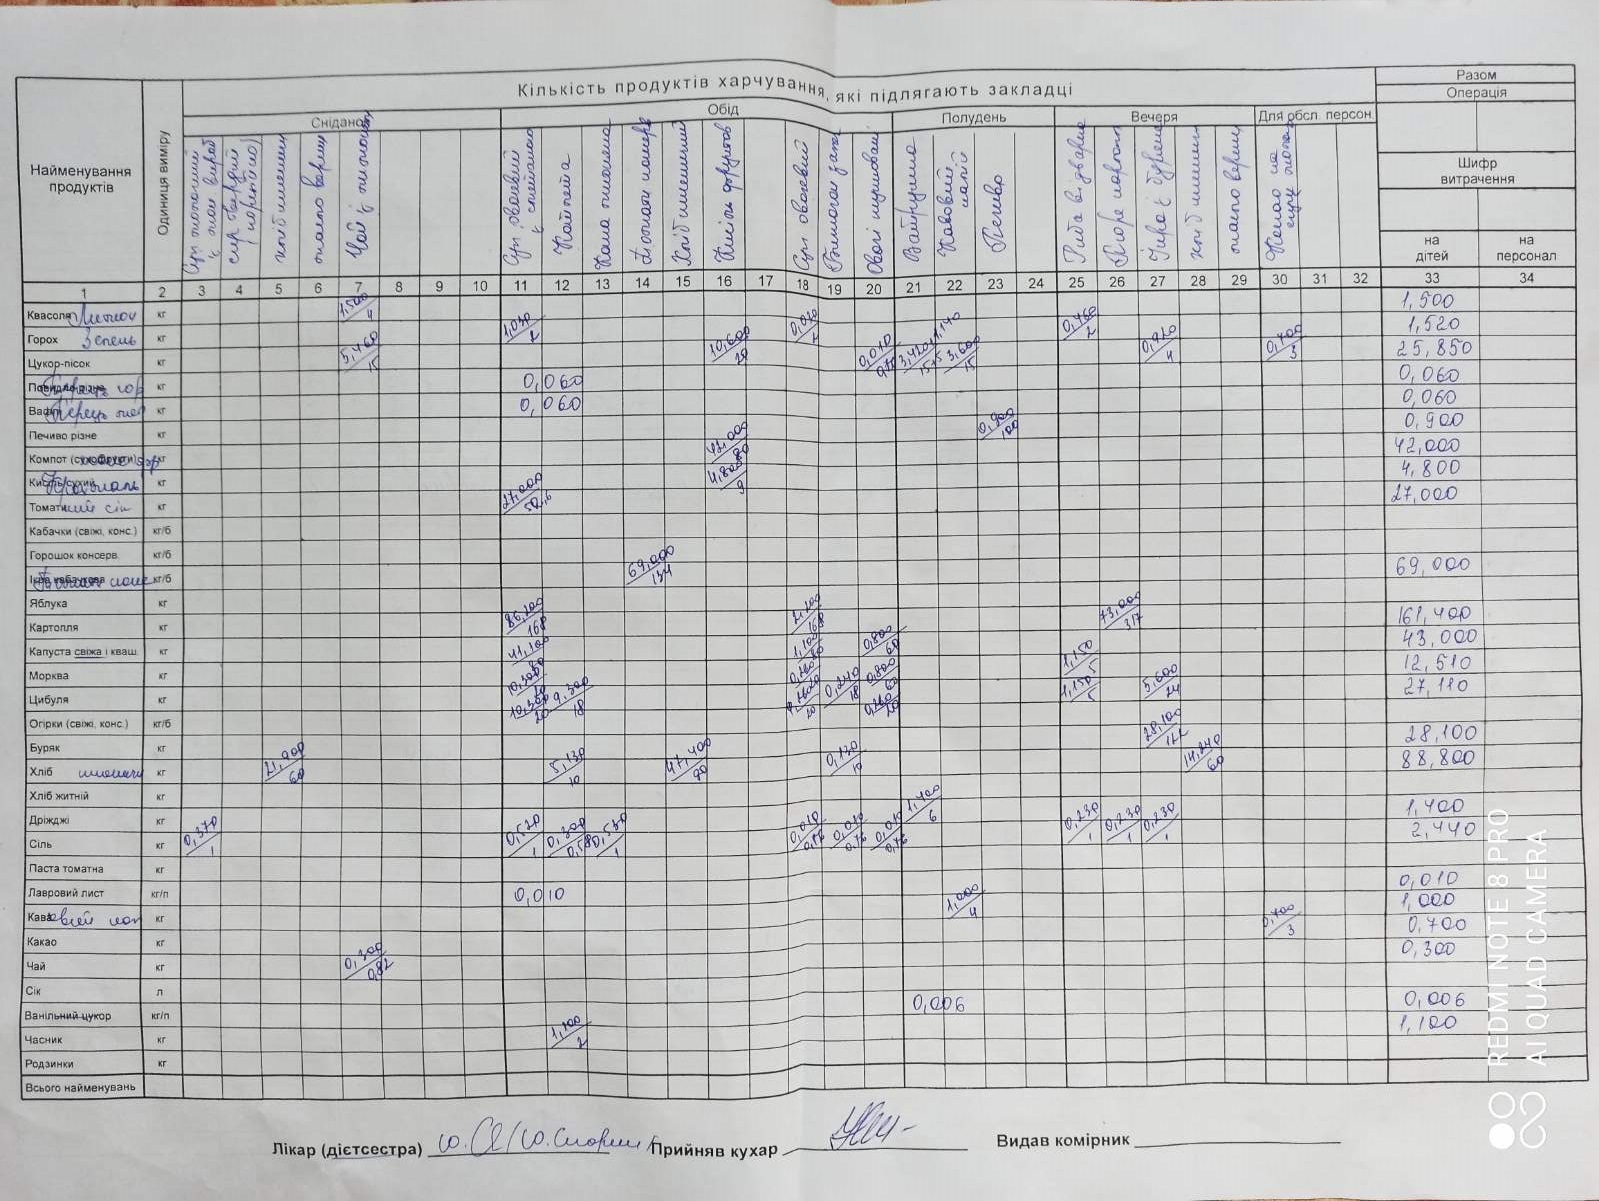 Кількість продуктів харчування, які підлягають закладці
Разом
Операція
Найменування продуктів
Одиниця виміру
Сніданок
Обід
Полудень
Вечеря
Для обсл. персон.
Шифр витрачення
на дітей
на персонал
хліб пшеничн
масло вершк
Чай з лимоном
Суп овочевий з сметаною
Котлета
Каша пшенична
Хліб пшеничний
Суп овочевий
Овочі тушковані
Ватрушка
Кавовий напій
Печиво
Риба відварна
Пюре картопл
Ікра з буряка
хліб пшенич
масло верш
1 2 3 4 5 6 7 8 9 10 11 12 13 14 15 16 17 18 19 20 21 22 23 24 25 26 27 28 29 30 31 32 33 34
Квасоля Лимон кг 1,500/4 1,500
Горох Зелень кг 1,030/2 0,030 0,460/2 1,520
Цукор-пісок кг 5,460/15 10,600/29 0,010 3,600/15 0,920/4 0,700/3 25,850
Повидло різне кг 0,060 0,060
Вафлі Перець кг 0,060 0,060
Печиво різне кг 0,900/100 0,900
Компот (сухофрукти) кг 42,000/80 42,000
Кисіль сухий Крохмаль кг 4,800/9 4,800
Томатний сік кг 27,000/50,6 27,000
Кабачки (свіжі, конс.) кг/б
Горошок консерв. кг/б
Ікра кабачкова кг/б 69,000/134 69,000
Яблука кг
Картопля кг 86,200/168 2,200/168 73,000/317 161,400
Капуста свіжа і кваш. кг 41,100/80 1,100/80 0,800/60 43,000
Морква кг 10,300/20 0,260/20 0,800/60 1,150/5 12,510
Цибуля кг 10,300/20 9,300/18 0,260/20 0,240/18 0,260/20 1,150/5 5,600/24 27,110
Огірки (свіжі, конс.) кг/б
Буряк кг 28,100/122 28,100
Хліб кг 21,900/60 5,130/10 47,400/90 0,130/10 14,240/60 88,800
Хліб житній кг
Дріжджі кг 1,400/6 1,400
Сіль кг 0,370/1 0,520/1 0,300/0,58 0,530/1 0,010/0,76 0,010/0,76 0,010/0,76 0,230/1 0,230/1 0,230/1 2,440
Паста томатна кг
Лавровий лист кг/п 0,010 0,010
Кавовий нап кг 1,000/4 1,000
0,700/3 0,700
Какао кг
Чай кг 0,300/0,82 0,300
Сік л
Ванільний цукор кг/п 0,006 0,006
Часник кг 1,100/2 1,100
Родзинки кг
Всього найменувань
Лікар (дієтсестра) Прийняв кухар Видав комірник
REDMI NOTE 8 PRO
AI QUAD CAMERA